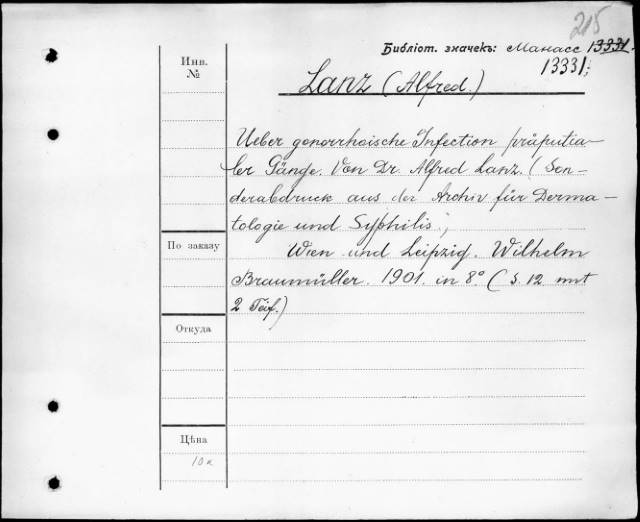 215
Библіот. значекъ: Манасс 13331
13331;
Инв.
№
Lanz (Alfred.)
Ueber gonorrhoische Infection präputia-
ler Gänge. Von Dr. Alfred Lanz. (Son-
derabdruck aus der Archiv für Derma-
tologie und Syphilis.,
По заказу
Wien und Leipzig. Wilhelm
Braumüller. 1901. in 8° (S. 12. mit
2 Taf.)
Откуда
Цѣна
10к